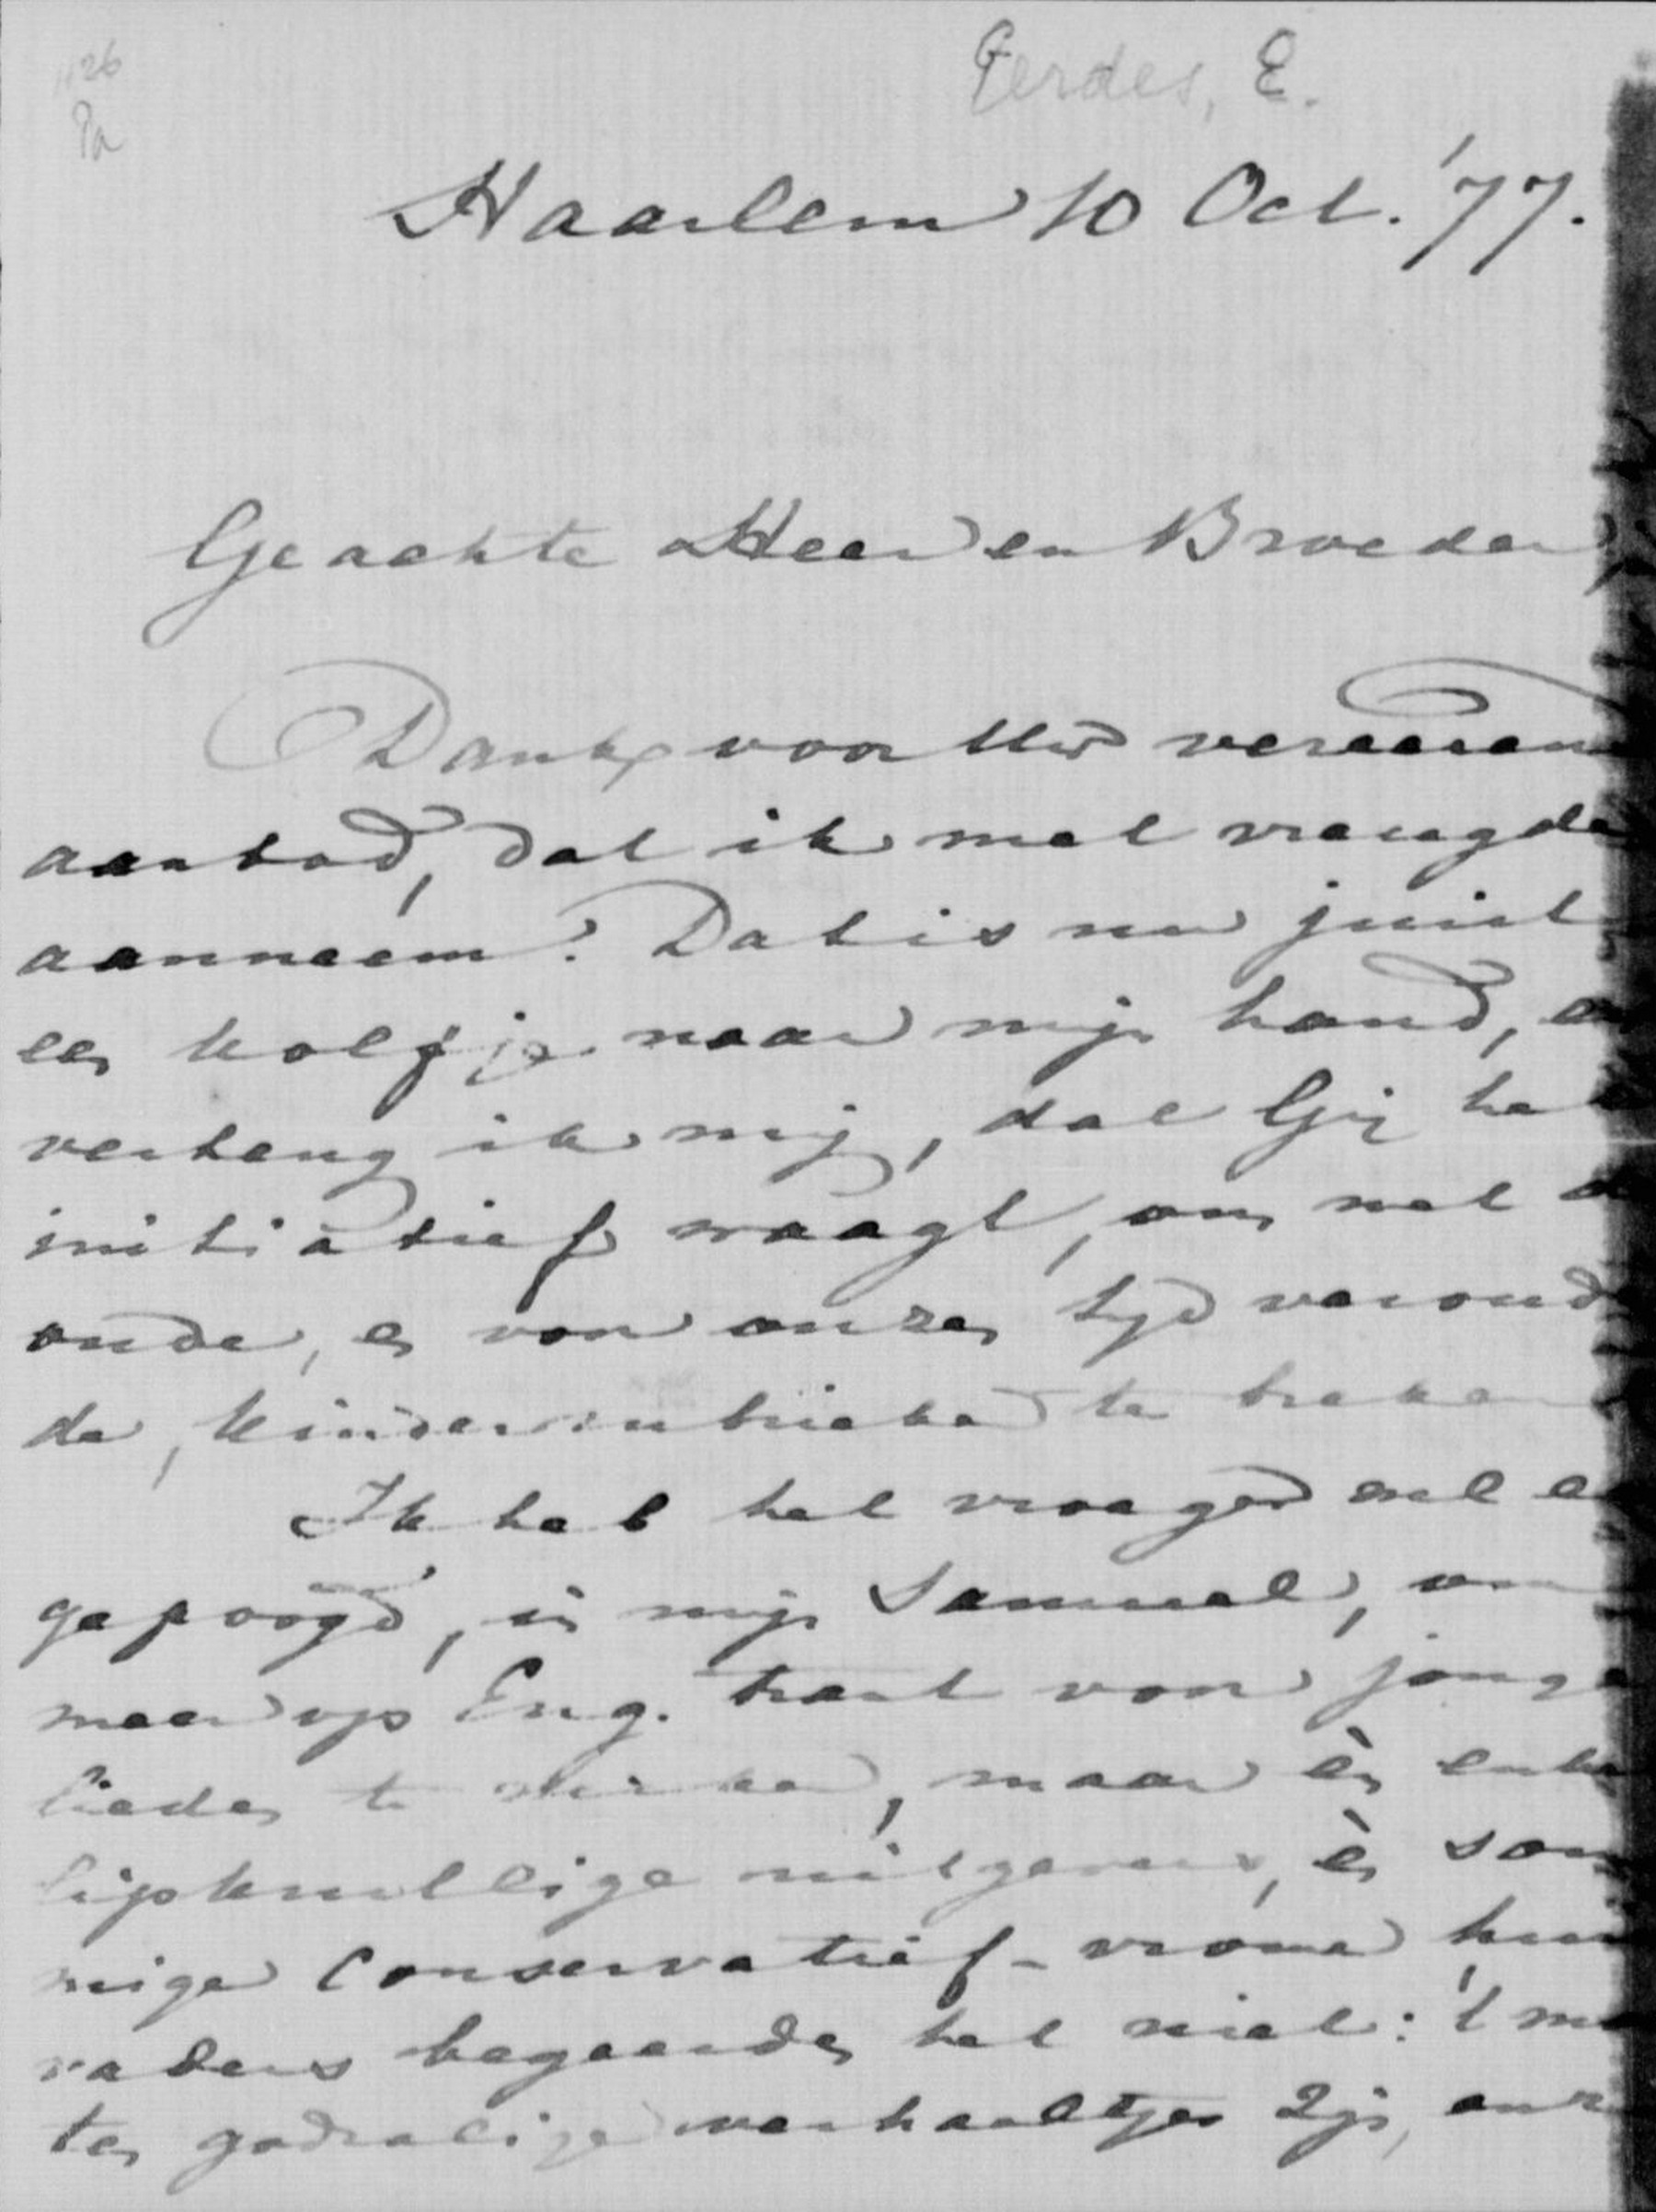 126
Pa
Gerdes, E.
Haarlem 10 Oct. '77.
Geachte Heer en Broeder,
Dank voor Uw vereerend
aanbod, dat ik met vreugde
aanneem! Dat is nu juist
een kolfje naar mijn hand, en
verheug ik mij, dat Gij het
initiatief waagt, om met de
oude, en van onzen tyd veroud
de, kinderrubrieken te breken
Ik heb het vroeger ook
gepoogd, in mijn Samuel, om
meer op Eng. trant voor jonge
lieden te werken, maar èn enke
lipknullige uitgevers, èn som
mige Conservatief-vrome huis
vaders begeerden het niet: 't moe
ten godzalige verhaaltjes zijn, onz